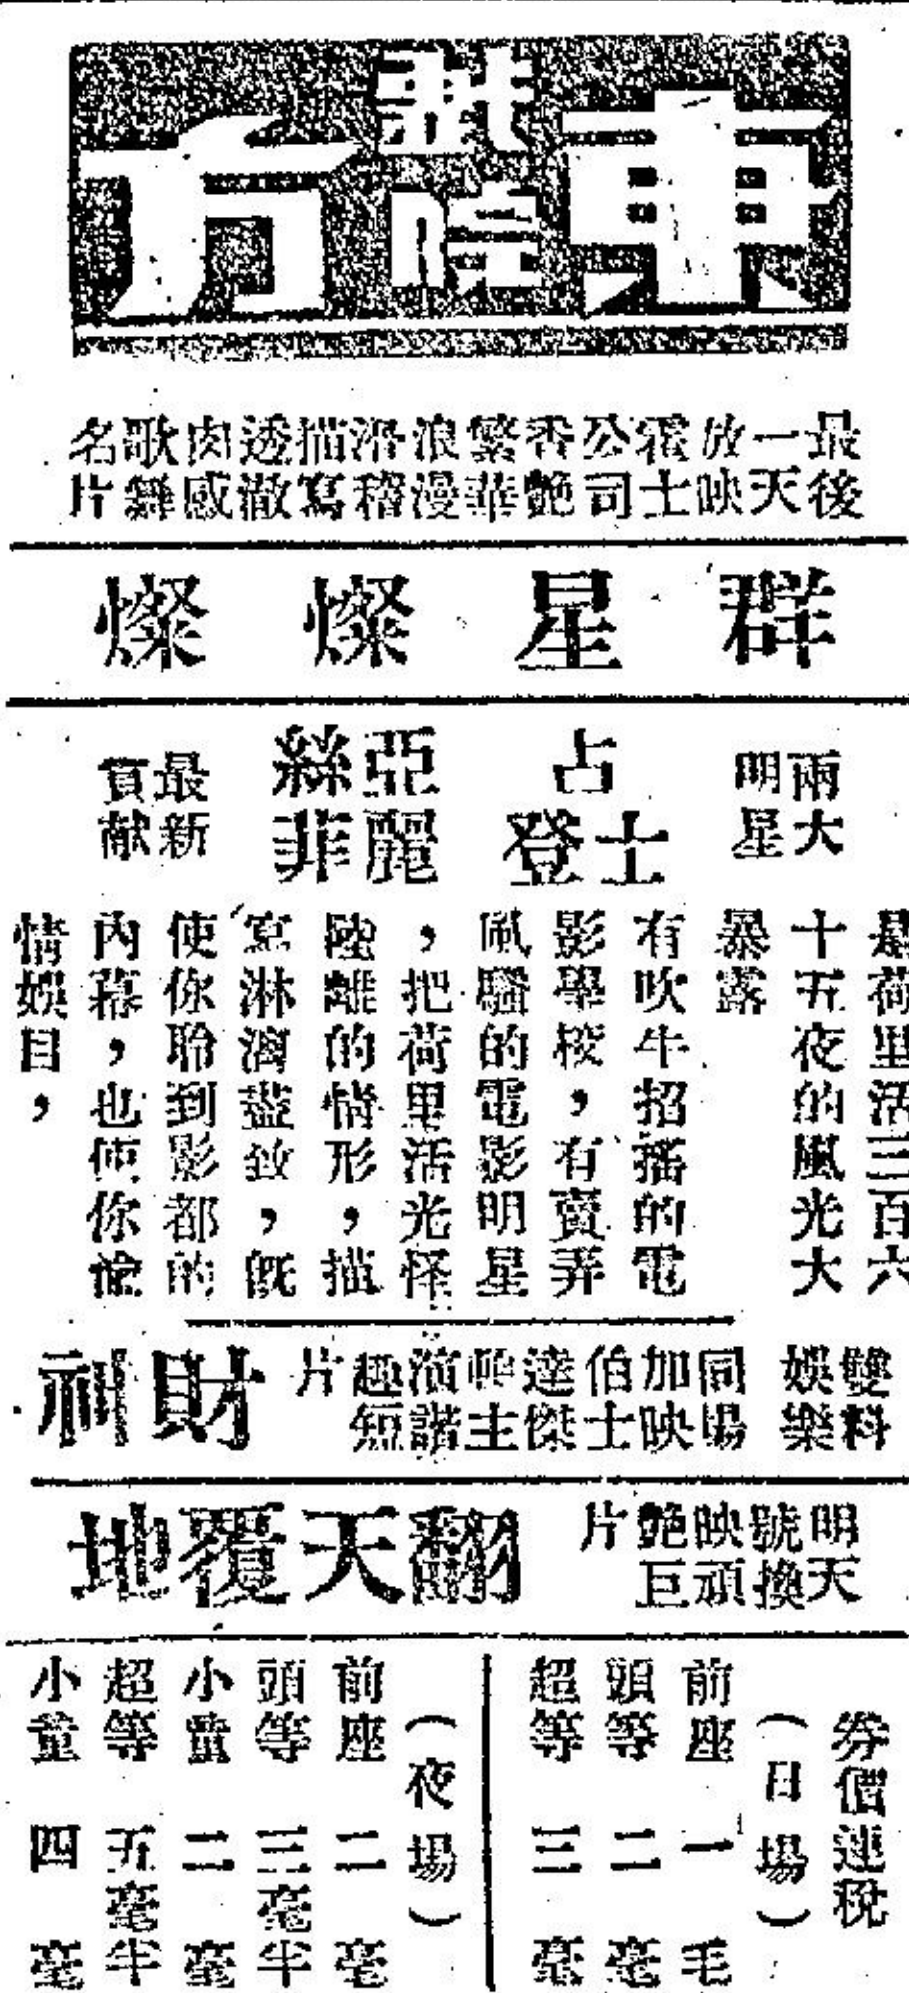 東方戲院
最後一天放映霍士公司香艷繁華浪漫滑稽描寫透澈肉感歌舞名片
群星燦燦
兩大明星
占士登
亞麗絲菲
最新貢献
是荷里活三百六
十五夜的風光大
暴露
有吹牛招搖的電
影學校，有賣弄
風騷的電影明星
，把荷里活光怪
陸離的情形，描
寫淋漓盡致，既
使你聆到影都的
內幕，也使你愉
情娛目，
雙料娛樂
同場加映伯士達傑主演諧趣短片
財神
明天換映艷巨片
翻天覆地
券價連稅
（日場）
前座 一毛
頭等 二毫
超等 三毫
（夜場）
前座 二毫
頭等 三毫半
小童 二毫
超等 五毫半
小童 四毫